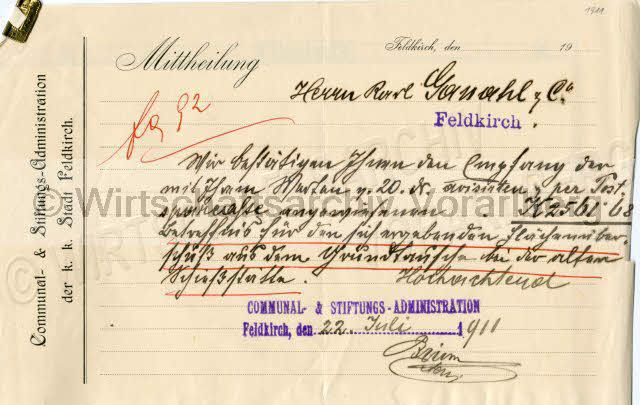 1911
Communal- & Stiftungs-Administration
der k. k. Stadt Feldkirch.
Mittheilung
Feldkirch, den 19
Herrn Karl Ganahl & Co
Feldkirch.
fa 92
Wir bestätigen Ihnen den Empfang der
mit Ihrem Werten v. 20. ds. avisirten & per Post
angewiesenen K 2561,68
Betreffnis für den sich ergebenden Flächenüber-
schuß aus dem Grundtausche bei der alten
Schießstätte. Hochachtend
COMMUNAL- & STIFTUNGS-ADMINISTRATION
Feldkirch, den 22. Juli 1911
© Wirtschaftsarchiv Vorarlberg